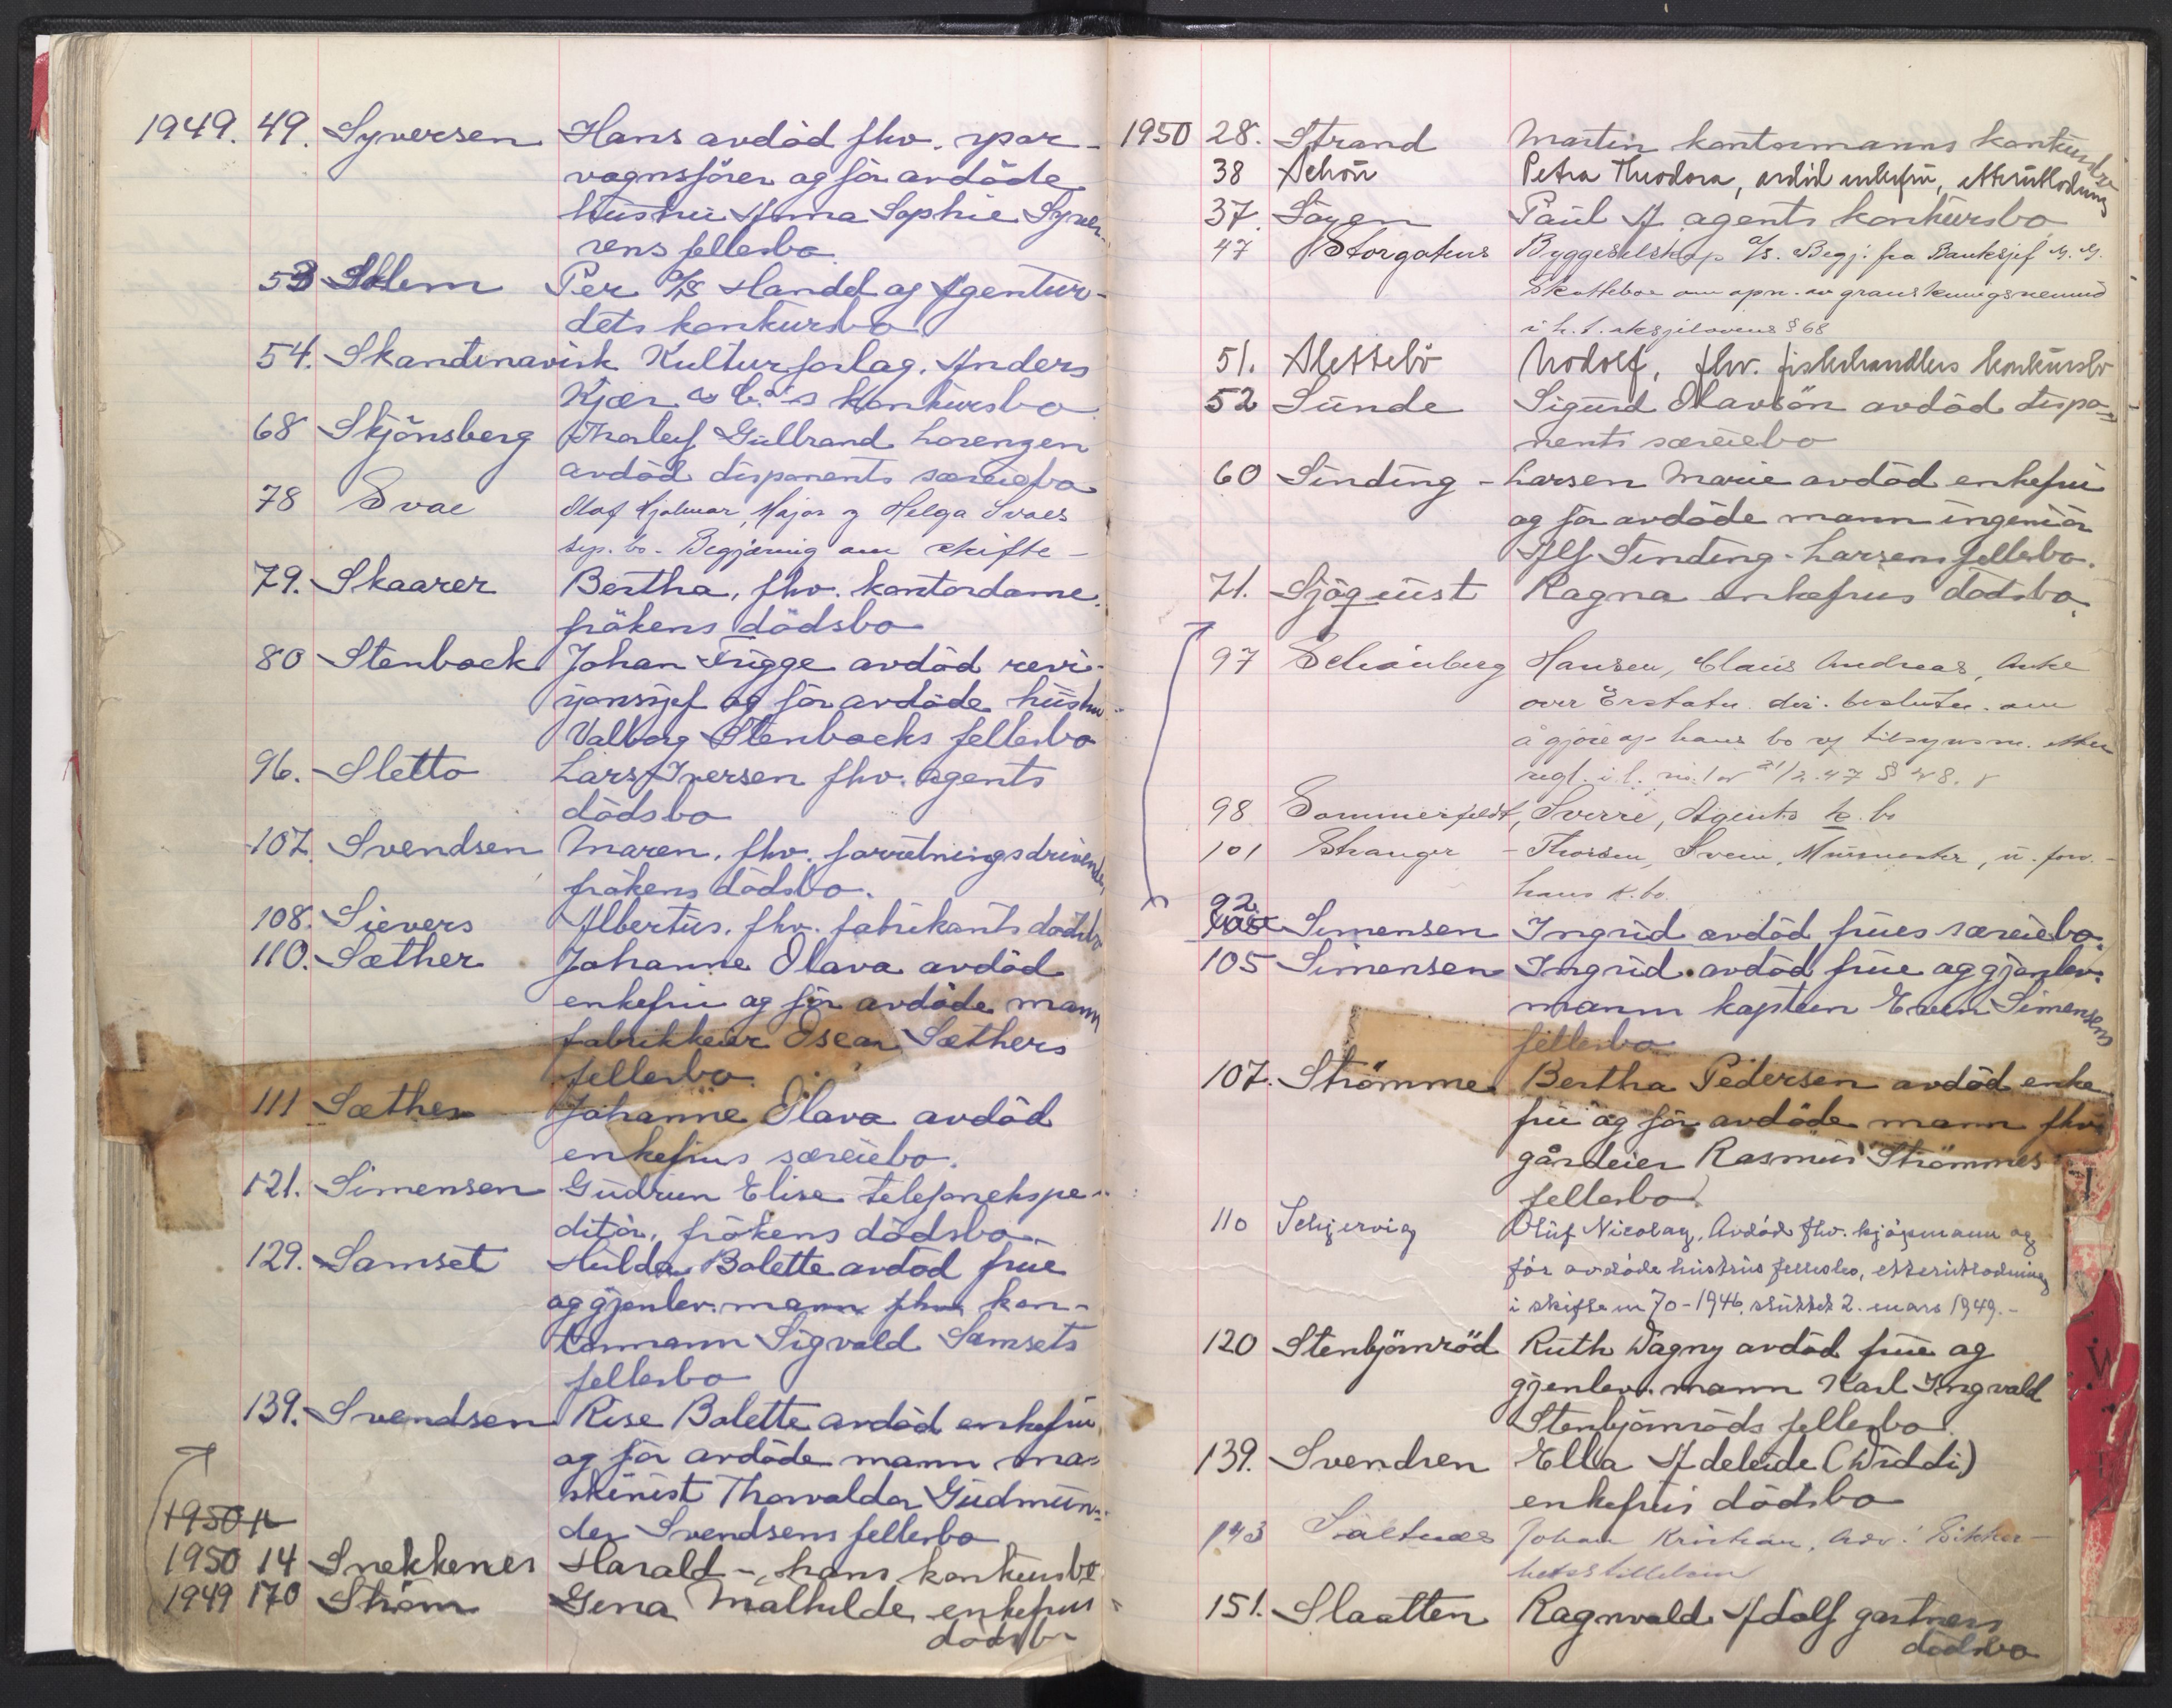 1949. 49. Syversen Hans avdöd fhv. spor-
vognsförer og för avdöde
hustru Anna Sophie Syver-
sens fellesbo
53 Solem Per A/S Handel og Agentur-
dets konkursbo
54. Skandinavisk Kulturforlag. Anders
Kjær & Co's konkursbo
68 Skjönsberg Thorleif Gulbrand Lorenzen
avdöd disponents særeiebo
78 Svae Olaf Hjalmar, Major og Helga Svaes
sep. bo - Begjæring om skifte -
79. Skaarer Bertha, fhv. kontordame,
frökens dödsbo
80 Stenbock Johan Frigge avdöd revi-
sjonssjef og för avdöde hustru
Valborg Stenbocks fellesbo
96. Sletto Lars Iversen fhv. agents
dödsbo
107. Svendsen Maren, fhv. forretningsdrivende,
frökens dödsbo.
108. Sievers Albertus, fhv. fabrikants dödsbo
110. Sæther Johanne Olava avdöd
enkefru og för avdöde mann
fabrikkeier Oscar Sæthers
fellesbo.
111 Sæther Johanne Olava avdöd
enkefrus særeiebo.
121. Simensen Gudrun Elise telefonekspe-
ditör, frökens dödsbo
129. Samset Hulda Bolette avdöd frue
og gjenlev. mann fhv. kon-
tormann Sigvald Samsets
fellesbo
139. Svendsen Rise Bolette avdöd enkefru
og för avdöde mann ma-
skinist Thorvaldor Gudmun-
der Svendsens fellesbo
1950 14
1950 14 Snekkenes Harald -, hans konkursbo
1949 170 Ström Gina Mathilde enkefrus
dödsbo
1950 28. Strand Martin kontormanns konkursbo
38 Schön Petra Theodora, avdöd enkefru, etterutlodning
37. Sögen Paul A. agents konkursbo
47 Storgatens Byggeselskap A/S. Begj. fra Banksjef
Skattebøe om opn. av granskningsnemnd
i h. t. aksjelovens § 68
51. Slettebö Nodolf, fhv. fiskehandlers konkursbo
52 Sunde Sigurd Olavsön avdöd dispo-
nents særeiebo
60 Sinding - Larsen Marie avdöd enkefru
og för avdöde mann ingeniör
Alf Sinding-Larsens fellesbo.
71. Sjöquist Ragna enkefrus dödsbo.
97 Schönberg Hansen, Claus Andreas, Anke
over Erstatn. dir. beslutn. om
å gjöre op hans bo v/ tilsynsm. etter
regl. i l. nr. 1 av 21/2. 47 § 48.
98 Sommerfeldt, Sverre, Agents k. bo
101 Stranger - Thorsen, Svein, Murmester, u. forr.
hans k. bo.
92.
Simensen Ingrid avdöd frues særeiebo.
105 Simensen Ingrid avdöd frue og gjenlev.
mann kaptein Even Simensens
fellesbo
107. Strömme Bertha Pedersen avdöd enke
fru og för avdöde mann fhv.
gårdeier Rasmus Strömmes
fellesbo
110 Schjervig Oluf Nicolay, Avdöd fhv. kjöpmann og
för avdöde hustrus fellesbo, etterutlodning
i skifte nr 70-1946, sluttet 2. mars 1949.-
120 Stenbjörnröd Ruth Dagny avdöd frue og
gjenlev. mann Karl Ingvald
Stenbjörnröds fellesbo.
139. Svendsen Ella Adeleide (Widdi)
enkefrus dödsbo
143 Saltnes Johan Kristian, Adv. Sikker-
hetsstillelsen
151. Slaatten Ragnvald Adolf gartners
dödsbo